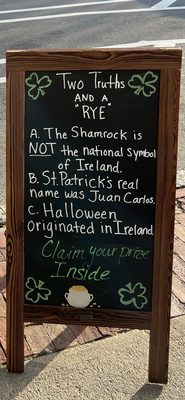 Two Truths
AND A
"RYE"
A. The Shamrock is
NOT the national symbol
of Ireland.
B. St. Patrick's real
name was Juan Carlos.
C. Halloween
originated in Ireland.
Claim your prize
Inside